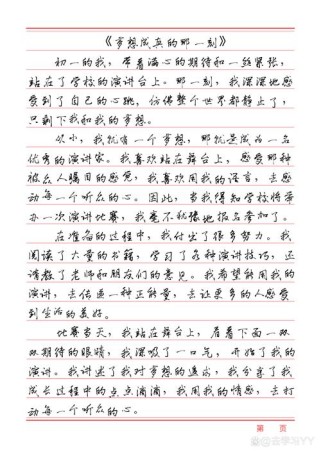 《梦想成真的那一刻》
初一的我，带着满心的期待和一丝紧张，
站在了学校的演讲台上。那一刻，我深深地感
受到了自己的心跳，仿佛整个世界都静止了，
只剩下我和我的梦想。
从小，我就有一个梦想，那就是成为一名
优秀的演讲家。我喜欢站在舞台上，感受那种
被众人瞩目的感觉，我喜欢用我的语言，去感
动每一个听众的心。因此，当我得知学校将举
办一次演讲比赛，我毫不犹豫地报名参加了。
在准备的过程中，我付出了很多努力。我
阅读了大量的书籍，学习了各种演讲技巧，还
请教了老师和朋友们的意见。我希望能用我的
演讲，去传递一种正能量，去让更多的人感受
到生活的美好。
比赛当天，我站在舞台上，看着下面一双
双期待的眼睛，我深吸了一口气，开始了我的
演讲。我讲述了我对梦想的追求，我分享了我
成长过程中的点点滴滴，我用我的情感，去打
动每一个听众的心。
第 页
去学习YY